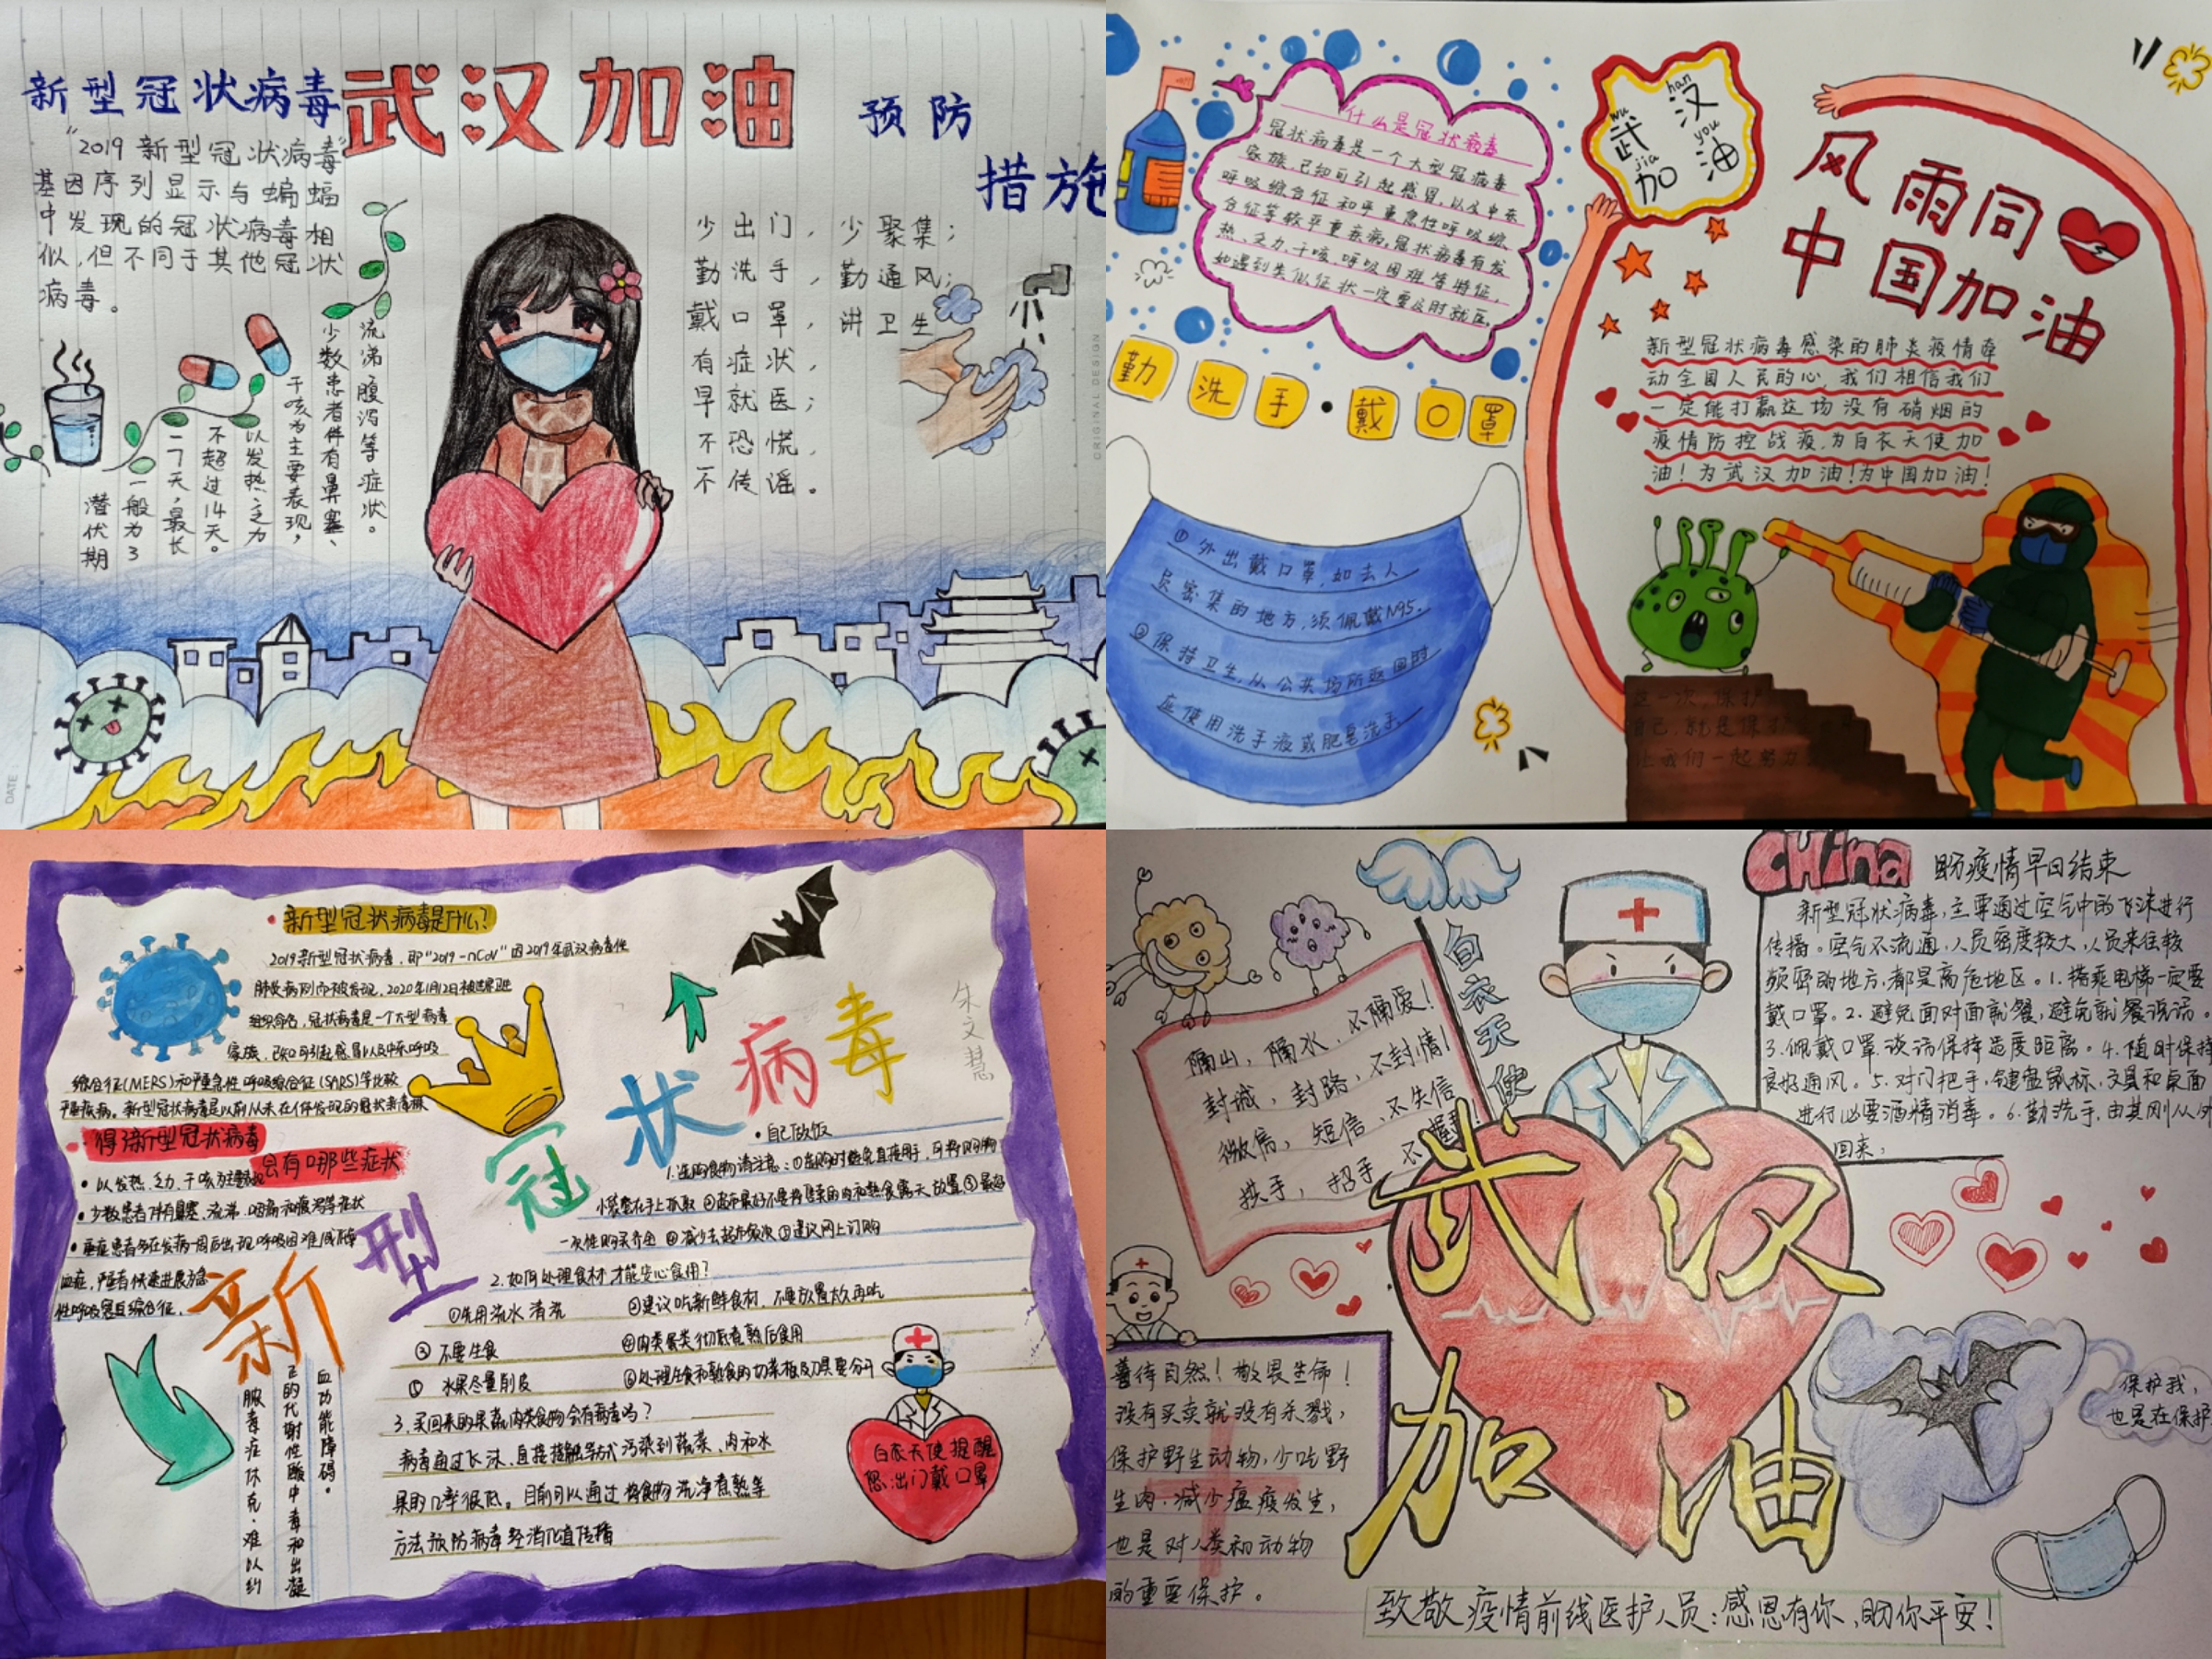 新型冠状病毒
武汉加油
预防
措施
"2019新型冠状病毒"
基因序列显示与蝙蝠
中发现的冠状病毒相
似,但不同于其他冠状
病毒。
潜伏期
一般为3
一7天,最长
不超过14天。
以发热乏力
干咳为主要表现,
少数患者伴有鼻塞、
流涕腹泻等症状。
少出门,少聚集;
勤洗手,勤通风;
戴口罩,讲卫生
有症状,
早就医;
不恐慌,
不传谣。
ORIGINAL DESIGN
DATE:
什么是冠状病毒
冠状病毒是一个大型冠病毒
家族,已知可引起感冒,以及中东
呼吸综合征和严重急性呼吸综
合征等较严重疾病,冠状病毒有发
热、乏力、干咳、呼吸困难等特征,
如遇到类似征状一定要及时就医。
勤洗手·戴口罩
①外出戴口罩,如去人
员密集的地方,须佩戴N95.
②保持卫生,从公共场所返回时
应使用洗手液或肥皂洗手
wu han
武汉
jia you
加油
风雨同
中国加油
新型冠状病毒感染的肺炎疫情牵
动全国人民的心,我们相信我们
一定能打赢这场没有硝烟的
疫情防控战疫,为白衣天使加
油!为武汉加油!为中国加油!
这一次,保护
自己,就是保护
让我们一起努力
新型冠状病毒是什么?
2019新型冠状病毒,即"2019-nCoV"因2019年武汉病毒性
肺炎病例而被发现,2020年1月12日被世界卫生
组织命名,冠状病毒是一个大型病毒
家族,已知可引起感冒以及中东呼吸
综合征(MERS)和严重急性呼吸综合征(SARS)等比较
严重疾病。新型冠状病毒是以前从未在人体发现的冠状病毒株
得了新型冠状病毒
会有哪些症状
•以发热、乏力、干咳为主要表现
•少数患者伴有鼻塞、流涕、咽痛和腹泻等症状
•重症患者多在发病一周后出现呼吸困难/或低氧
血症,严重者快速进展为急
性呼吸窘迫综合征,
脓毒症休克,难以纠
正的代谢性酸中毒和出凝
血功能障碍。
新型冠状病毒
朱文慧
•自己做饭
1.选购食物请注意:①选购时避免直接用手,可将购物
小袋套在手上抓取
一次性购买齐全 ④减少去超市频次 ⑤建议网上订购
2.如何处理食材,才能安心食用?
①先用流水清洗 ②建议吃新鲜食材,不要放置太久再吃
③不要生食 ④肉类蛋类彻底煮熟后食用
⑤水果尽量削皮 ⑥处理生食和熟食的切菜板及刀具要分开
3.买回来的果蔬肉类食物会有病毒吗?
病毒通过飞沫、直接接触等方式污染到蔬菜、肉和水
果的几率很低。目前可以通过将食物洗净煮熟等
方法预防病毒经消化道传播
白衣天使提醒
您:出门戴口罩
China 盼疫情早日结束
新型冠状病毒,主要通过空气中的飞沫进行
传播。空气不流通,人员密度较大,人员来往较
频密的地方,都是高危地区。1.搭乘电梯一定要
戴口罩。2.避免面对面就餐,避免就餐说话。
3.佩戴口罩,谈话保持适度距离。4.随时保持
良好通风。5.对门把手,键盘鼠标,文具和桌面
进行必要酒精消毒。6.勤洗手,尤其刚从外
回来,
白衣天使
隔山,隔水,不隔爱!
封城,封路,不封情!
微信,短信,不失信
拱手,招手,不握手!
武汉
加油
善待自然!敬畏生命!
没有买卖就没有杀戮,
保护野生动物,少吃野
生肉,减少瘟疫发生,
也是对人类和动物
的重要保护。
保护我,
也是在保护
致敬疫情前线医护人员:感恩有你,盼你平安!